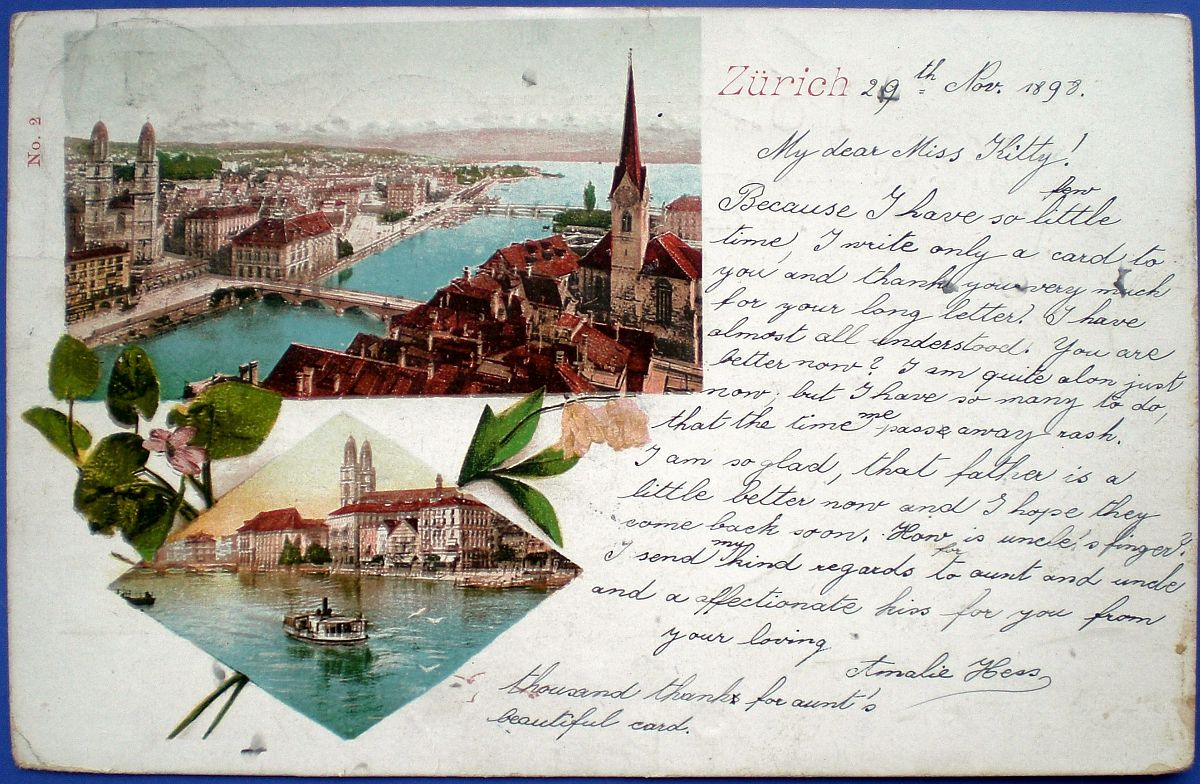 No. 2
Zürich 29th Nov. 1898.
My dear Miss Kitty!
few
Because I have so little
time, I write only a card to
you and thank you very much
for your long letter. I have
almost all understood. You are
better now? I am quite alon just
now, but I have so many to do,
that the time me passe away rash.
I am so glad, that father is a
little better now and I hope they
come back soon. How is uncle's finger?
I send my kind regards to aunt and uncle
for
and a affectionate kiss for you from
your loving
Amalie Hess
thousand thanks for aunt's
beautiful card.